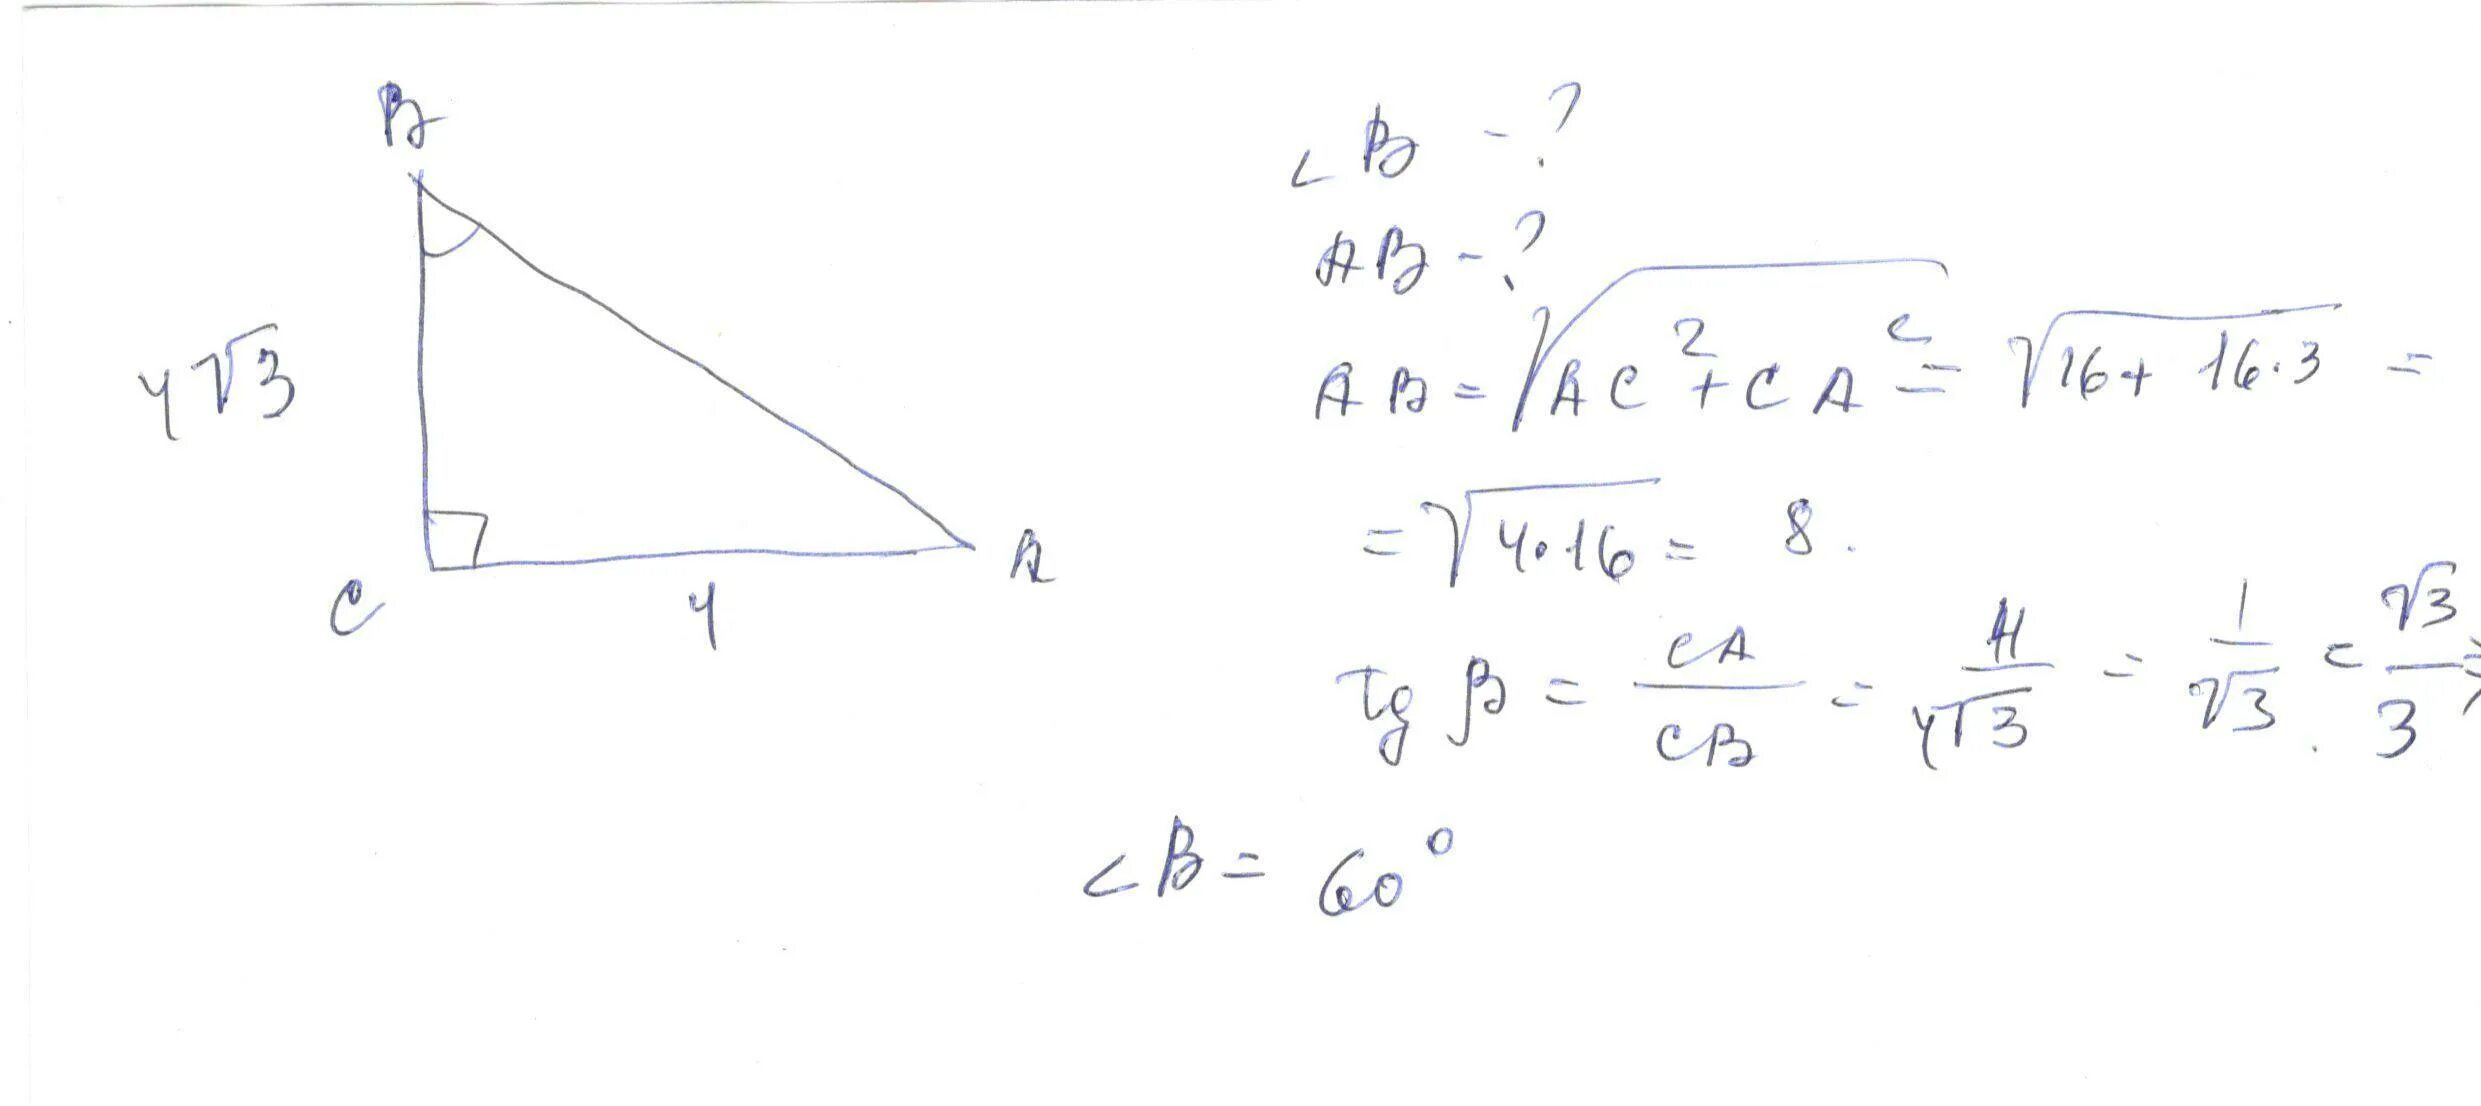 B
4√3
C
4
A
∠B - ?
AB - ?
AB = √AC² + CA² = √16 + 16·3 =
= √4·16 = 8.
tg β = CA/CB = 4/4√3 = 1/√3 = √3/3 =>
∠B = 60°